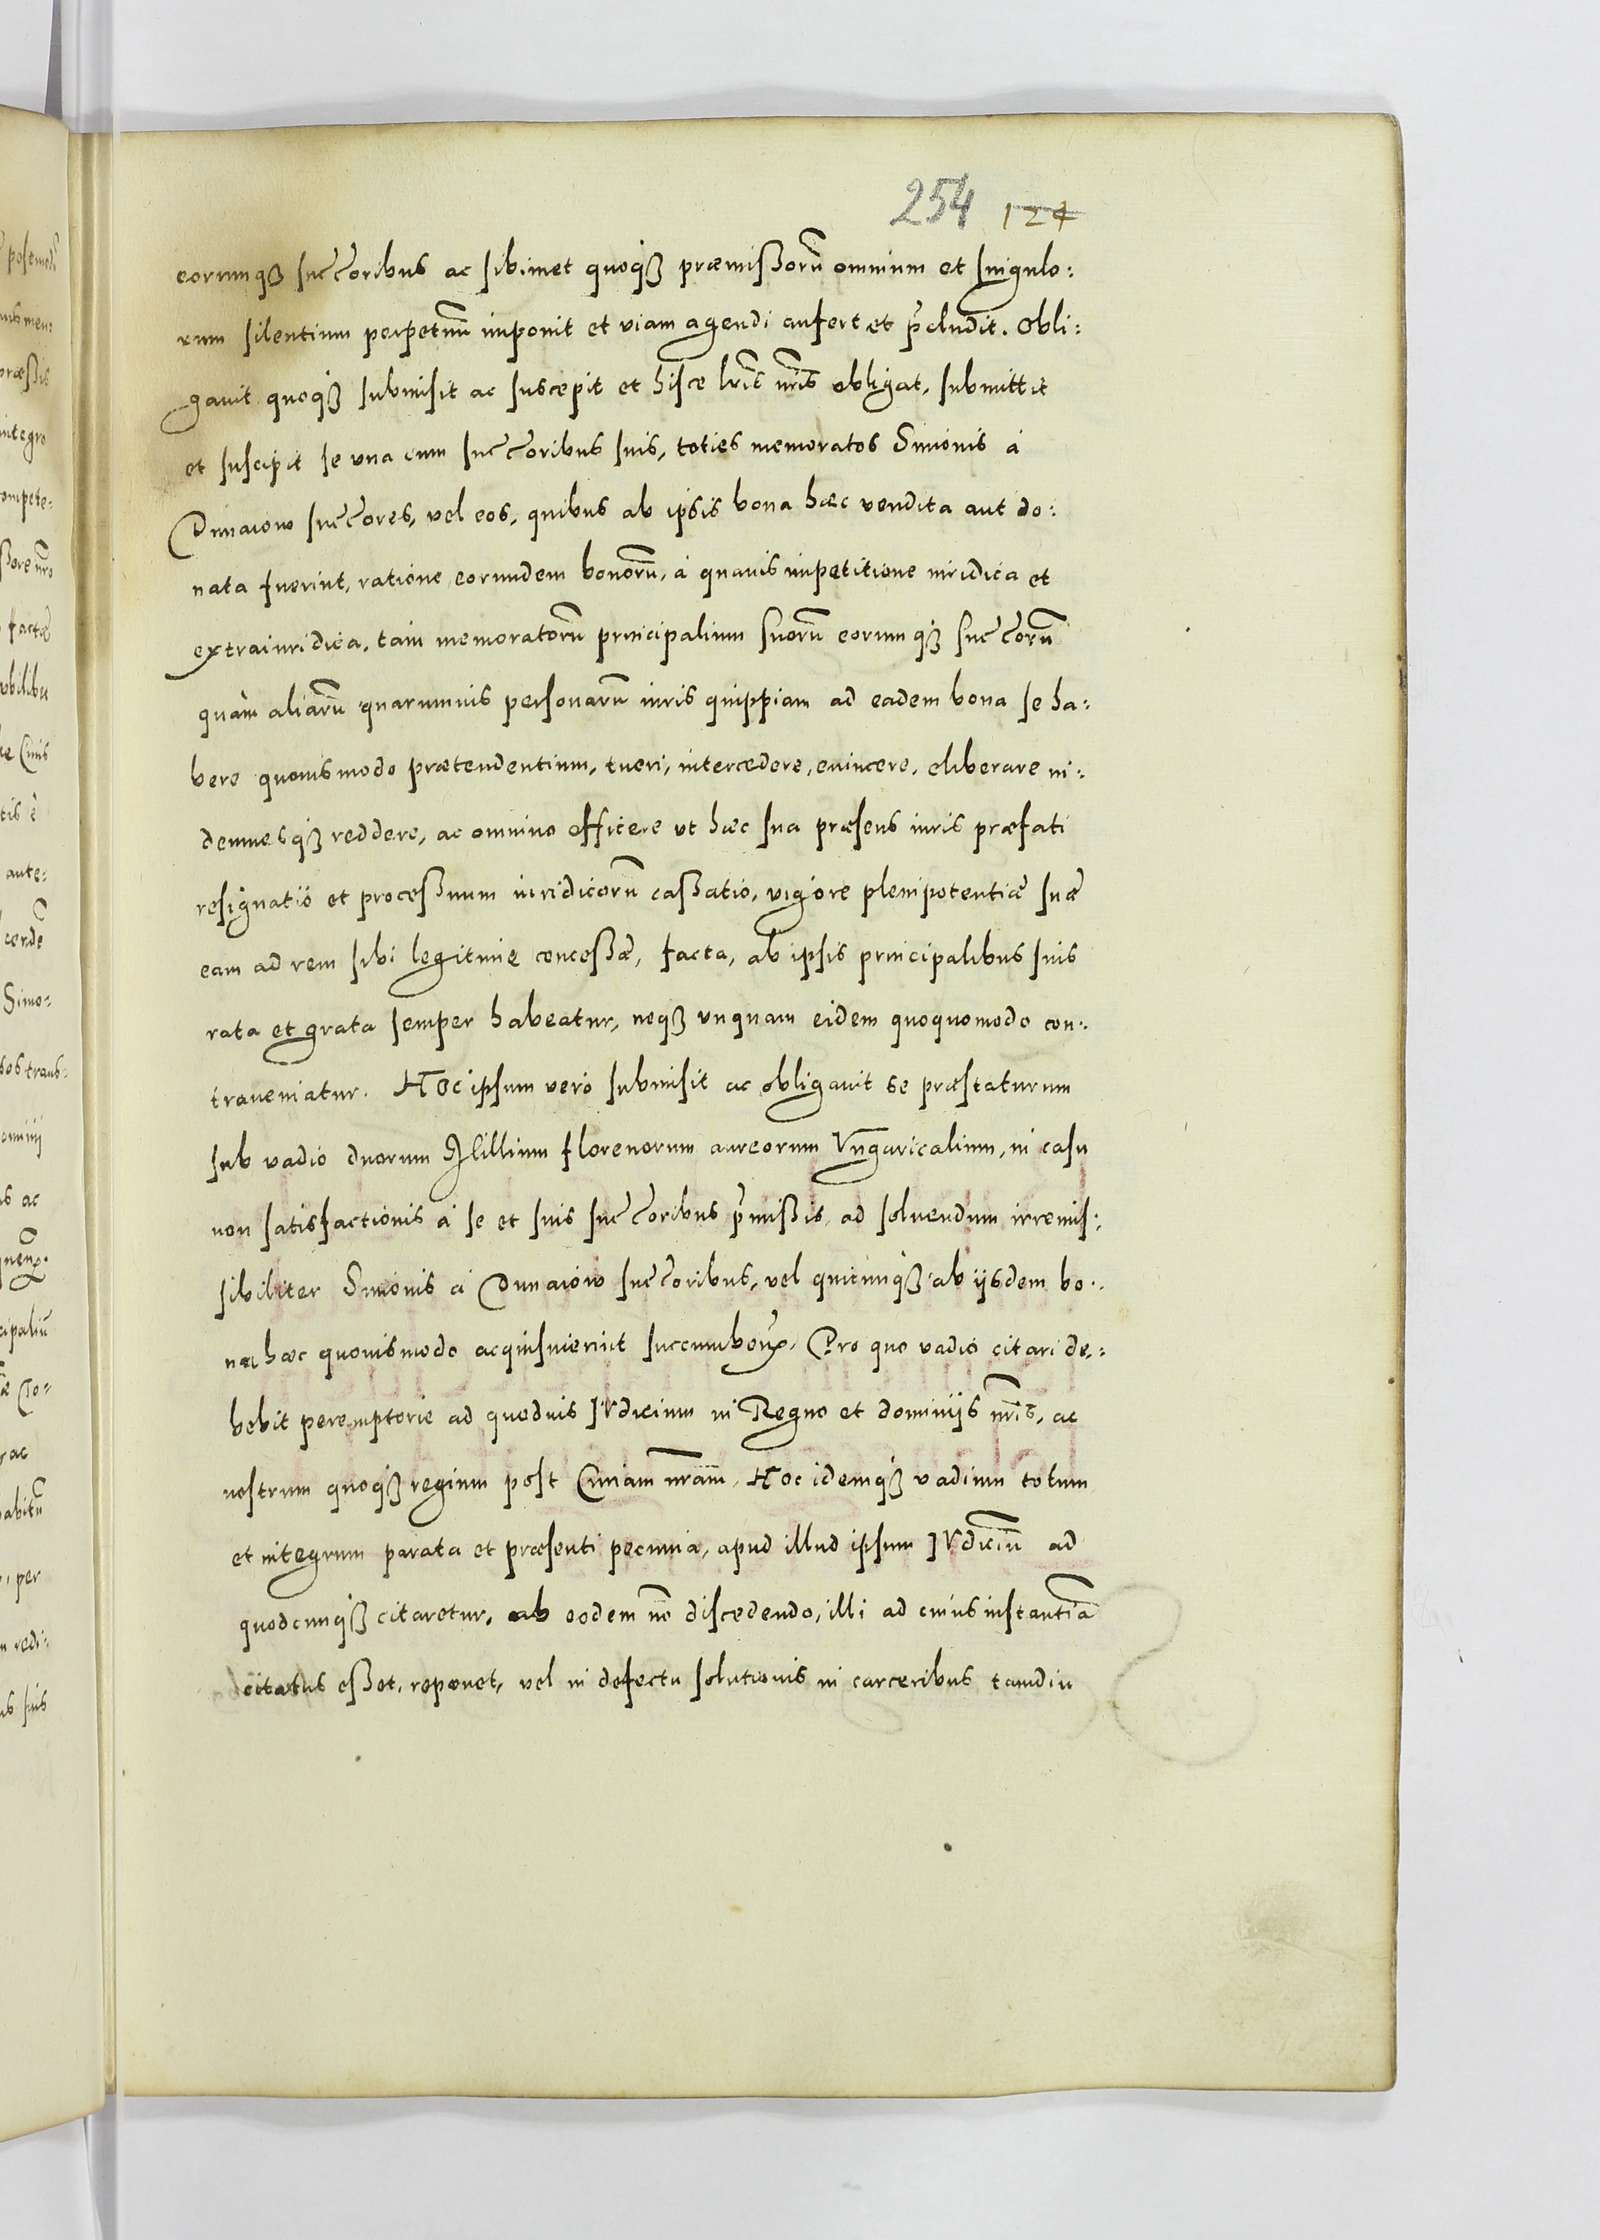 254 124
eorumqʒ succ̃oribus ac sibimet quoqʒ præmissorũ omnium et singulo:
rum silentium perpetuũ imponit et viam agendi aufert et p̃cludit. Obli:
gauit quoqʒ submisit ac suscepit et hisce lr̃is nr̃is obligat, submittit
et suscipit se vna cum succ̃oribus suis, toties memoratos Simonis á
Dunaiow succ̃ores, vel eos, quibus ab ipsis bona hæc vendita aut do:
nata fuerint, ratione eorundem bonorũ, á quauis impetitione iuridica et
extraiuridica, tam memoratorũ principalium suorũ eorumqʒ succ̃orũ
quàm aliarũ quarumuis personarũ iuris quippiam ad eadem bona se ha:
bere quouismodo prætendentium, tueri, intercedere, euincere, eliberare in:
demnesqʒ reddere, ac omnino efficere vt hæc sua præsens iuris præfati
resignatió et processuum iuridicorũ cassatio, vigore plenipotentiæ suæ
eam ad rem sibi legitimè concessæ, facta, ab ipsis principalibus suis
rata et grata semper habeatur, neqʒ vnquam eidem quoquomodo con:
traueniatur. Hoc ipsum veró submisit ac obligauit se præstaturum
sub vadio duorum Millium florenorum aureorum Vngaricalium, in casu
non satisfactionis á se et suis succ̃oribus p̃missis, ad soluendum irremis:
sibiliter Simonis á Dunaiów succ̃oribus, vel quicunqʒ ab ijsdem bo:
na hæc quouismodo acquisuerint succumbent̃. Pro quo vadio citari de:
bebit peremptorie ad quoduis IVdicium in Regno et dominijs nr̃is, ac
nostrum quoqʒ regium post Curiam nr̃am. Hoc idemqʒ vadium totum
et integrum parata et præsenti pecunia, apud illud ipsum IVdiciũ ad
quodcunqʒ citaretur, ab eodem nõ discedendo, illi ad cuius instantiã
citatus esset, reponet, vel in defectu solutionis in carceribus tamdiu